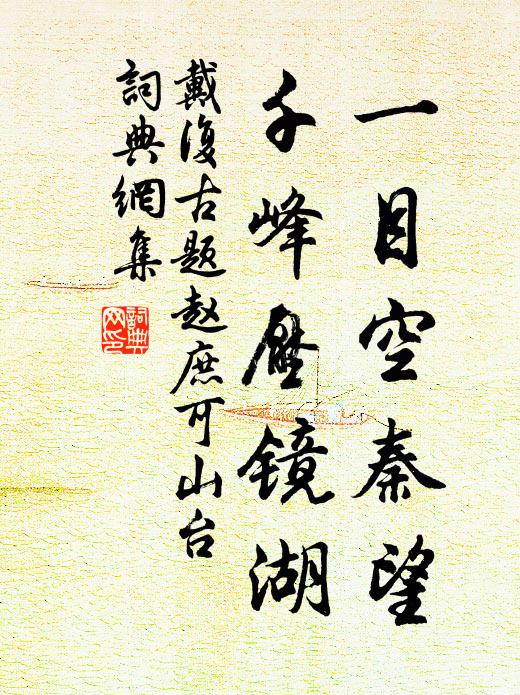 一目空秦望
千峰壓镜湖
戴復古题赵庶可山台
詞典網集
詞典
网印